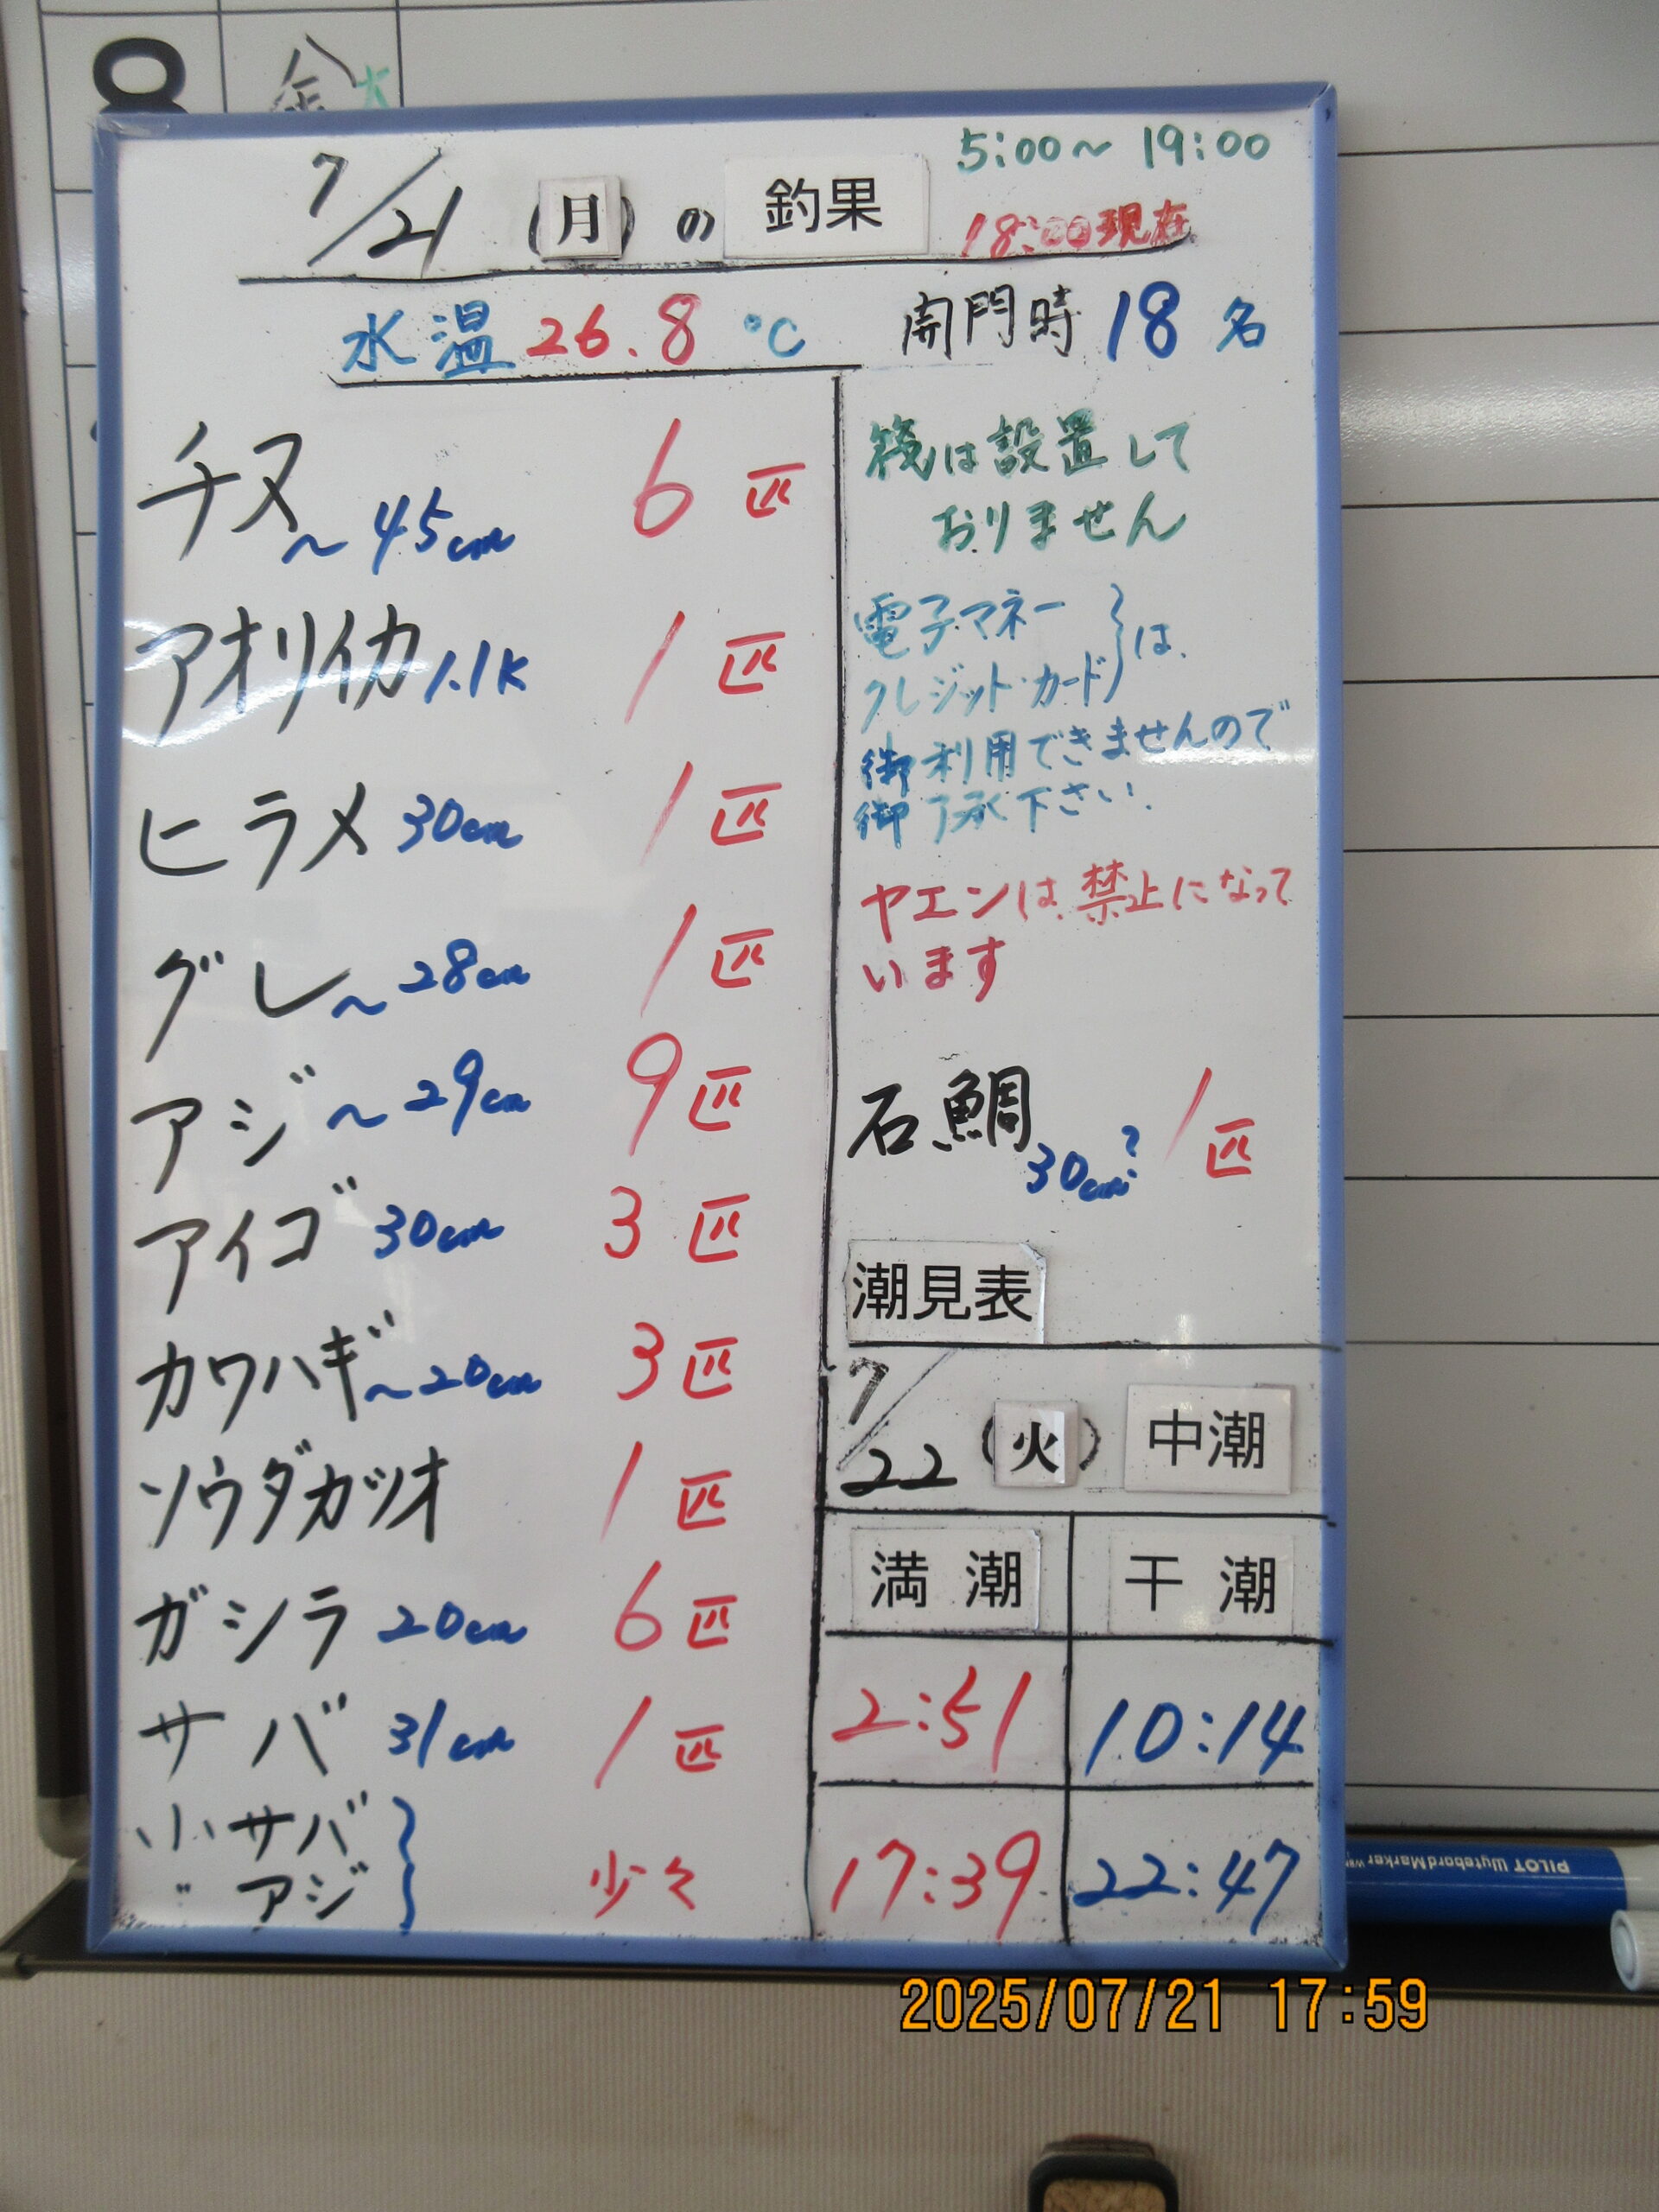 8 金 大
5:00～19:00
7/21 (月) の 釣果
18:00現在
水温 26.8 ℃ 開門時 18 名
チヌ ～45cm 6 匹
アオリイカ 1.1K 1 匹
ヒラメ 30cm 1 匹
グレ ～28cm 1 匹
アジ ～29cm 9 匹
アイゴ 30cm 3 匹
カワハギ ～20cm 3 匹
ソウダカツオ 1 匹
ガシラ 20cm 6 匹
サバ 31cm 1 匹
小サバ
〃 アジ } 少々
筏は設置して
おりません
電子マネー
クレジット・カード } は、
御利用できませんので
御了承下さい.
ヤエンは、禁止になって
います
石鯛 30cm? 1 匹
潮見表
7/22 (火) 中潮
満潮 干潮
2:51 10:14
17:39 22:47
PILOT WytebordMarker
2025/07/21 17:59